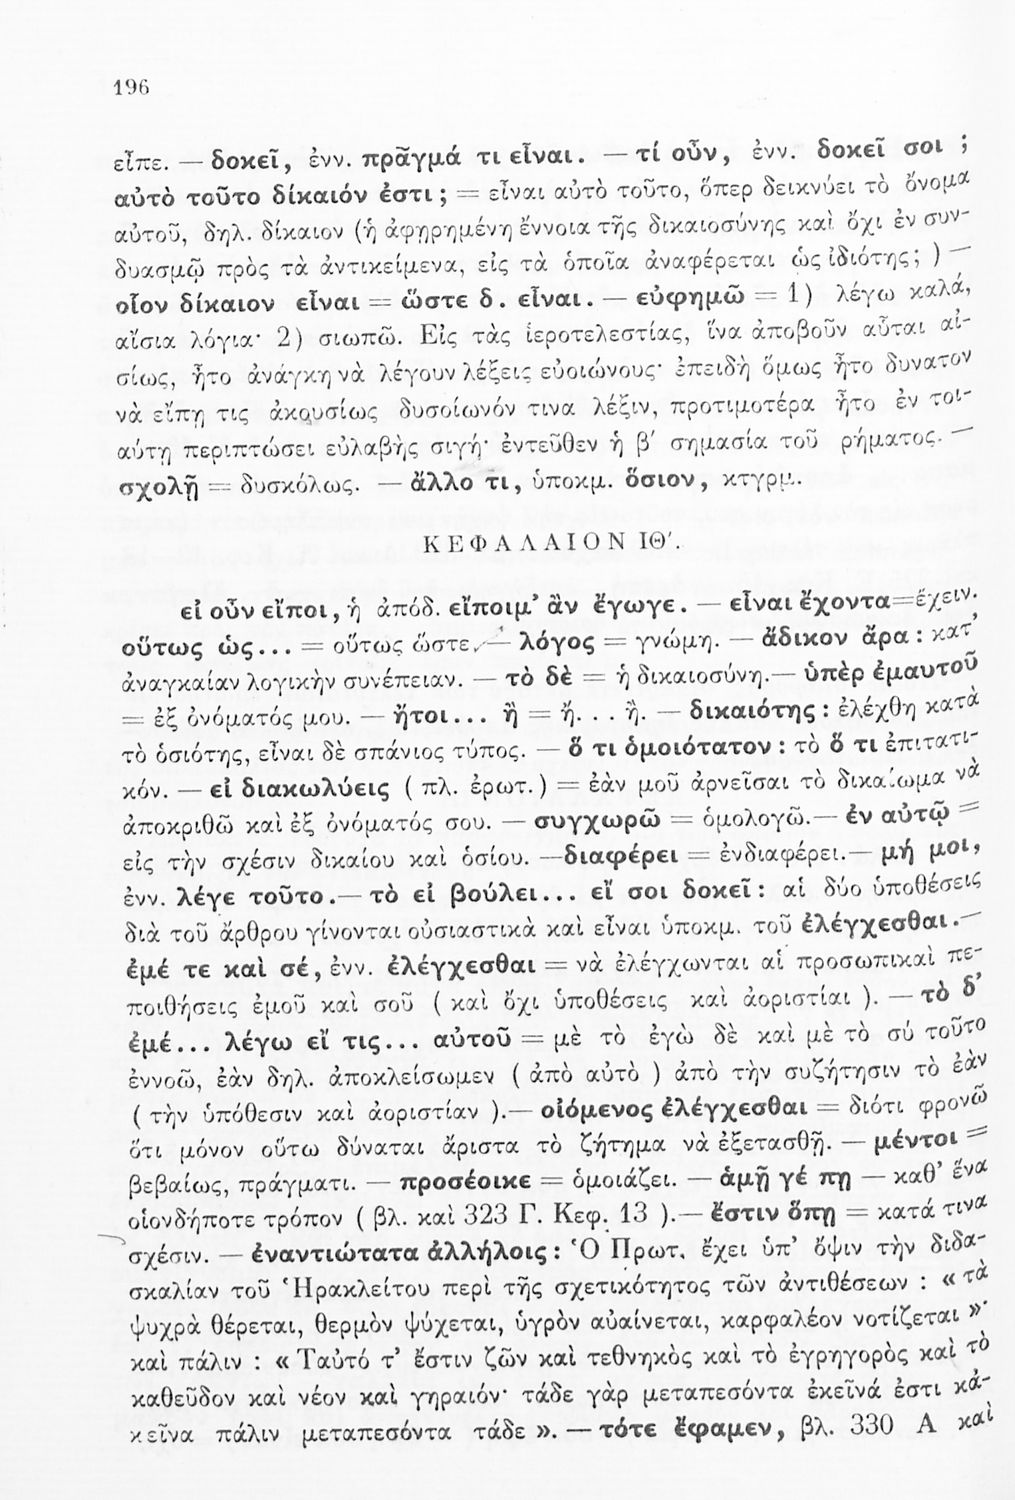 196
εἶπε. — δοκεῖ, ἐνν. πρᾶγμά τι εἶναι. — τί οὖν, ἐνν. δοκεῖ σοι ;
αὐτὸ τοῦτο δίκαιόν ἐστι ; = εἶναι αὐτὸ τοῦτο, ὅπερ δεικνύει τὸ ὄνομα
αὐτοῦ, δηλ. δίκαιον (ἡ ἀφῃρημένη ἔννοια τῆς δικαιοσύνης καὶ ὄχι ἐν συν-
δυασμῷ πρὸς τὰ ἀντικείμενα, εἰς τὰ ὁποῖα ἀναφέρεται ὡς ἰδιότης ; ) —
οἷον δίκαιον εἶναι = ὥστε δ. εἶναι. — εὐφημῶ = 1) λέγω καλά,
αἴσια λόγια· 2) σιωπῶ. Εἰς τὰς ἱεροτελεστίας, ἵνα ἀποβοῦν αὗται αἰ-
σίως, ἦτο ἀνάγκη νὰ λέγουν λέξεις εὐοιώνους· ἐπειδὴ ὅμως ἦτο δυνατὸν
νὰ εἴπῃ τις ἀκουσίως δυσοίωνόν τινα λέξιν, προτιμοτέρα ἦτο ἐν τοι-
αύτῃ περιπτώσει εὐλαβὴς σιγή· ἐντεῦθεν ἡ β′ σημασία τοῦ ρήματος. —
σχολῇ = δυσκόλως. — ἄλλο τι, ὑποκμ. ὅσιον, κτγρμ.
ΚΕΦΑΛΑΙΟΝ ΙΘ′.
εἰ οὖν εἴποι, ἡ ἀπόδ. εἴποιμ’ ἂν ἔγωγε. — εἶναι ἔχοντα=ἔχειν.
οὕτως ὡς... = οὕτως ὥστε. — λόγος = γνώμη. — ἄδικον ἄρα : κατ’
ἀναγκαίαν λογικὴν συνέπειαν. — τὸ δὲ = ἡ δικαιοσύνη.— ὑπὲρ ἐμαυτοῦ
= ἐξ ὀνόματός μου. — ἤτοι... ἢ = ἤ. . . ἤ. — δικαιότης : ἐλέχθη κατὰ
τὸ ὁσιότης, εἶναι δὲ σπάνιος τύπος. — ὅ τι ὁμοιότατον : τὸ ὅ τι ἐπιτατι-
κόν. — εἰ διακωλύεις ( πλ. ἐρωτ. ) = ἐὰν μοῦ ἀρνεῖσαι τὸ δικαίωμα νὰ
ἀποκριθῶ καὶ ἐξ ὀνόματός σου. — συγχωρῶ = ὁμολογῶ.— ἐν αὐτῷ =
εἰς τὴν σχέσιν δικαίου καὶ ὁσίου. —διαφέρει = ἐνδιαφέρει.— μή μοι,
ἐνν. λέγε τοῦτο.— τὸ εἰ βούλει... εἴ σοι δοκεῖ : αἱ δύο ὑποθέσεις
διὰ τοῦ ἄρθρου γίνονται οὐσιαστικὰ καὶ εἶναι ὑποκμ. τοῦ ἐλέγχεσθαι.—
ἐμέ τε καὶ σέ, ἐνν. ἐλέγχεσθαι = νὰ ἐλέγχωνται αἱ προσωπικαὶ πε-
ποιθήσεις ἐμοῦ καὶ σοῦ ( καὶ ὄχι ὑποθέσεις καὶ ἀοριστίαι ). — τὸ δ’
ἐμέ... λέγω εἴ τις... αὐτοῦ = μὲ τὸ ἐγὼ δὲ καὶ μὲ τὸ σύ τοῦτο
ἐννοῶ, ἐὰν δηλ. ἀποκλείσωμεν ( ἀπὸ αὐτὸ ) ἀπὸ τὴν συζήτησιν τὸ ἐὰν
( τὴν ὑπόθεσιν καὶ ἀοριστίαν ).— οἰόμενος ἐλέγχεσθαι = διότι φρονῶ
ὅτι μόνον οὕτω δύναται ἄριστα τὸ ζήτημα νὰ ἐξετασθῇ. — μέντοι =
βεβαίως, πράγματι. — προσέοικε = ὁμοιάζει. — ἁμῇ γέ πῃ — καθ’ ἕνα
οἱονδήποτε τρόπον ( βλ. καὶ 323 Γ. Κεφ. 13 ).— ἔστιν ὅπῃ = κατά τινα
σχέσιν. — ἐναντιώτατα ἀλλήλοις : Ὁ Πρωτ. ἔχει ὑπ’ ὄψιν τὴν διδα-
σκαλίαν τοῦ Ἡρακλείτου περὶ τῆς σχετικότητος τῶν ἀντιθέσεων : « τὰ
ψυχρὰ θέρεται, θερμὸν ψύχεται, ὑγρὸν αὐαίνεται, καρφαλέον νοτίζεται »·
καὶ πάλιν : « Ταὐτό τ’ ἔστιν ζῶν καὶ τεθνηκὸς καὶ τὸ ἐγρηγορὸς καὶ τὸ
καθεῦδον καὶ νέον καὶ γηραιόν· τάδε γὰρ μεταπεσόντα ἐκεῖνά ἐστι κἀ-
κεῖνα πάλιν μεταπεσόντα τάδε ». — τότε ἔφαμεν, βλ. 330 Α καὶ